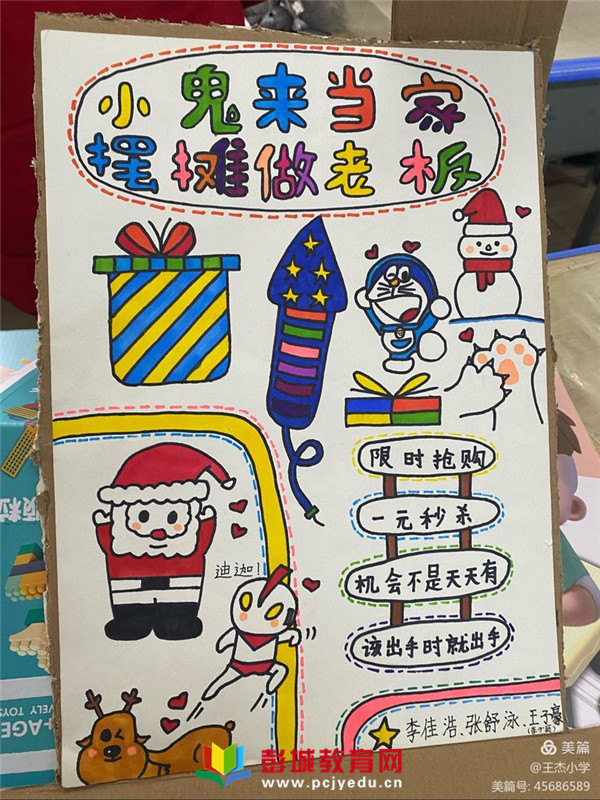 小鬼来当家
摆摊做老板
限时抢购
一元秒杀
机会不是天天有
该出手时就出手
迪迦!
李佳浩、张舒泳、王子豪
彭城教育网
www.pcjyedu.cn
美篇
@王杰小学
美篇号: 45686589